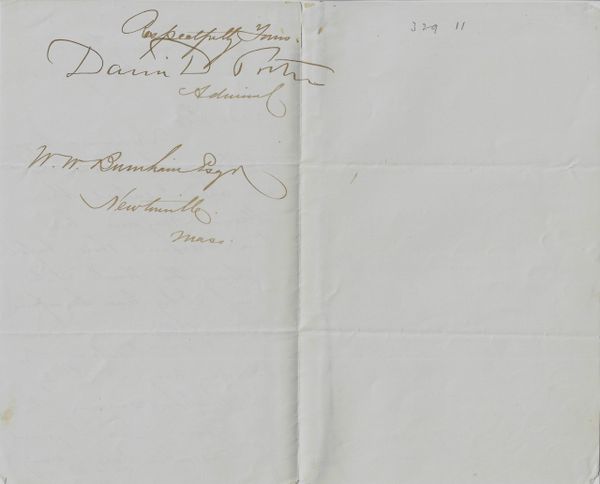 Respectfully Yours.
David D Porter
Admiral
W. W. Burnham Esqr
Newtonville.
Mass.
329 11